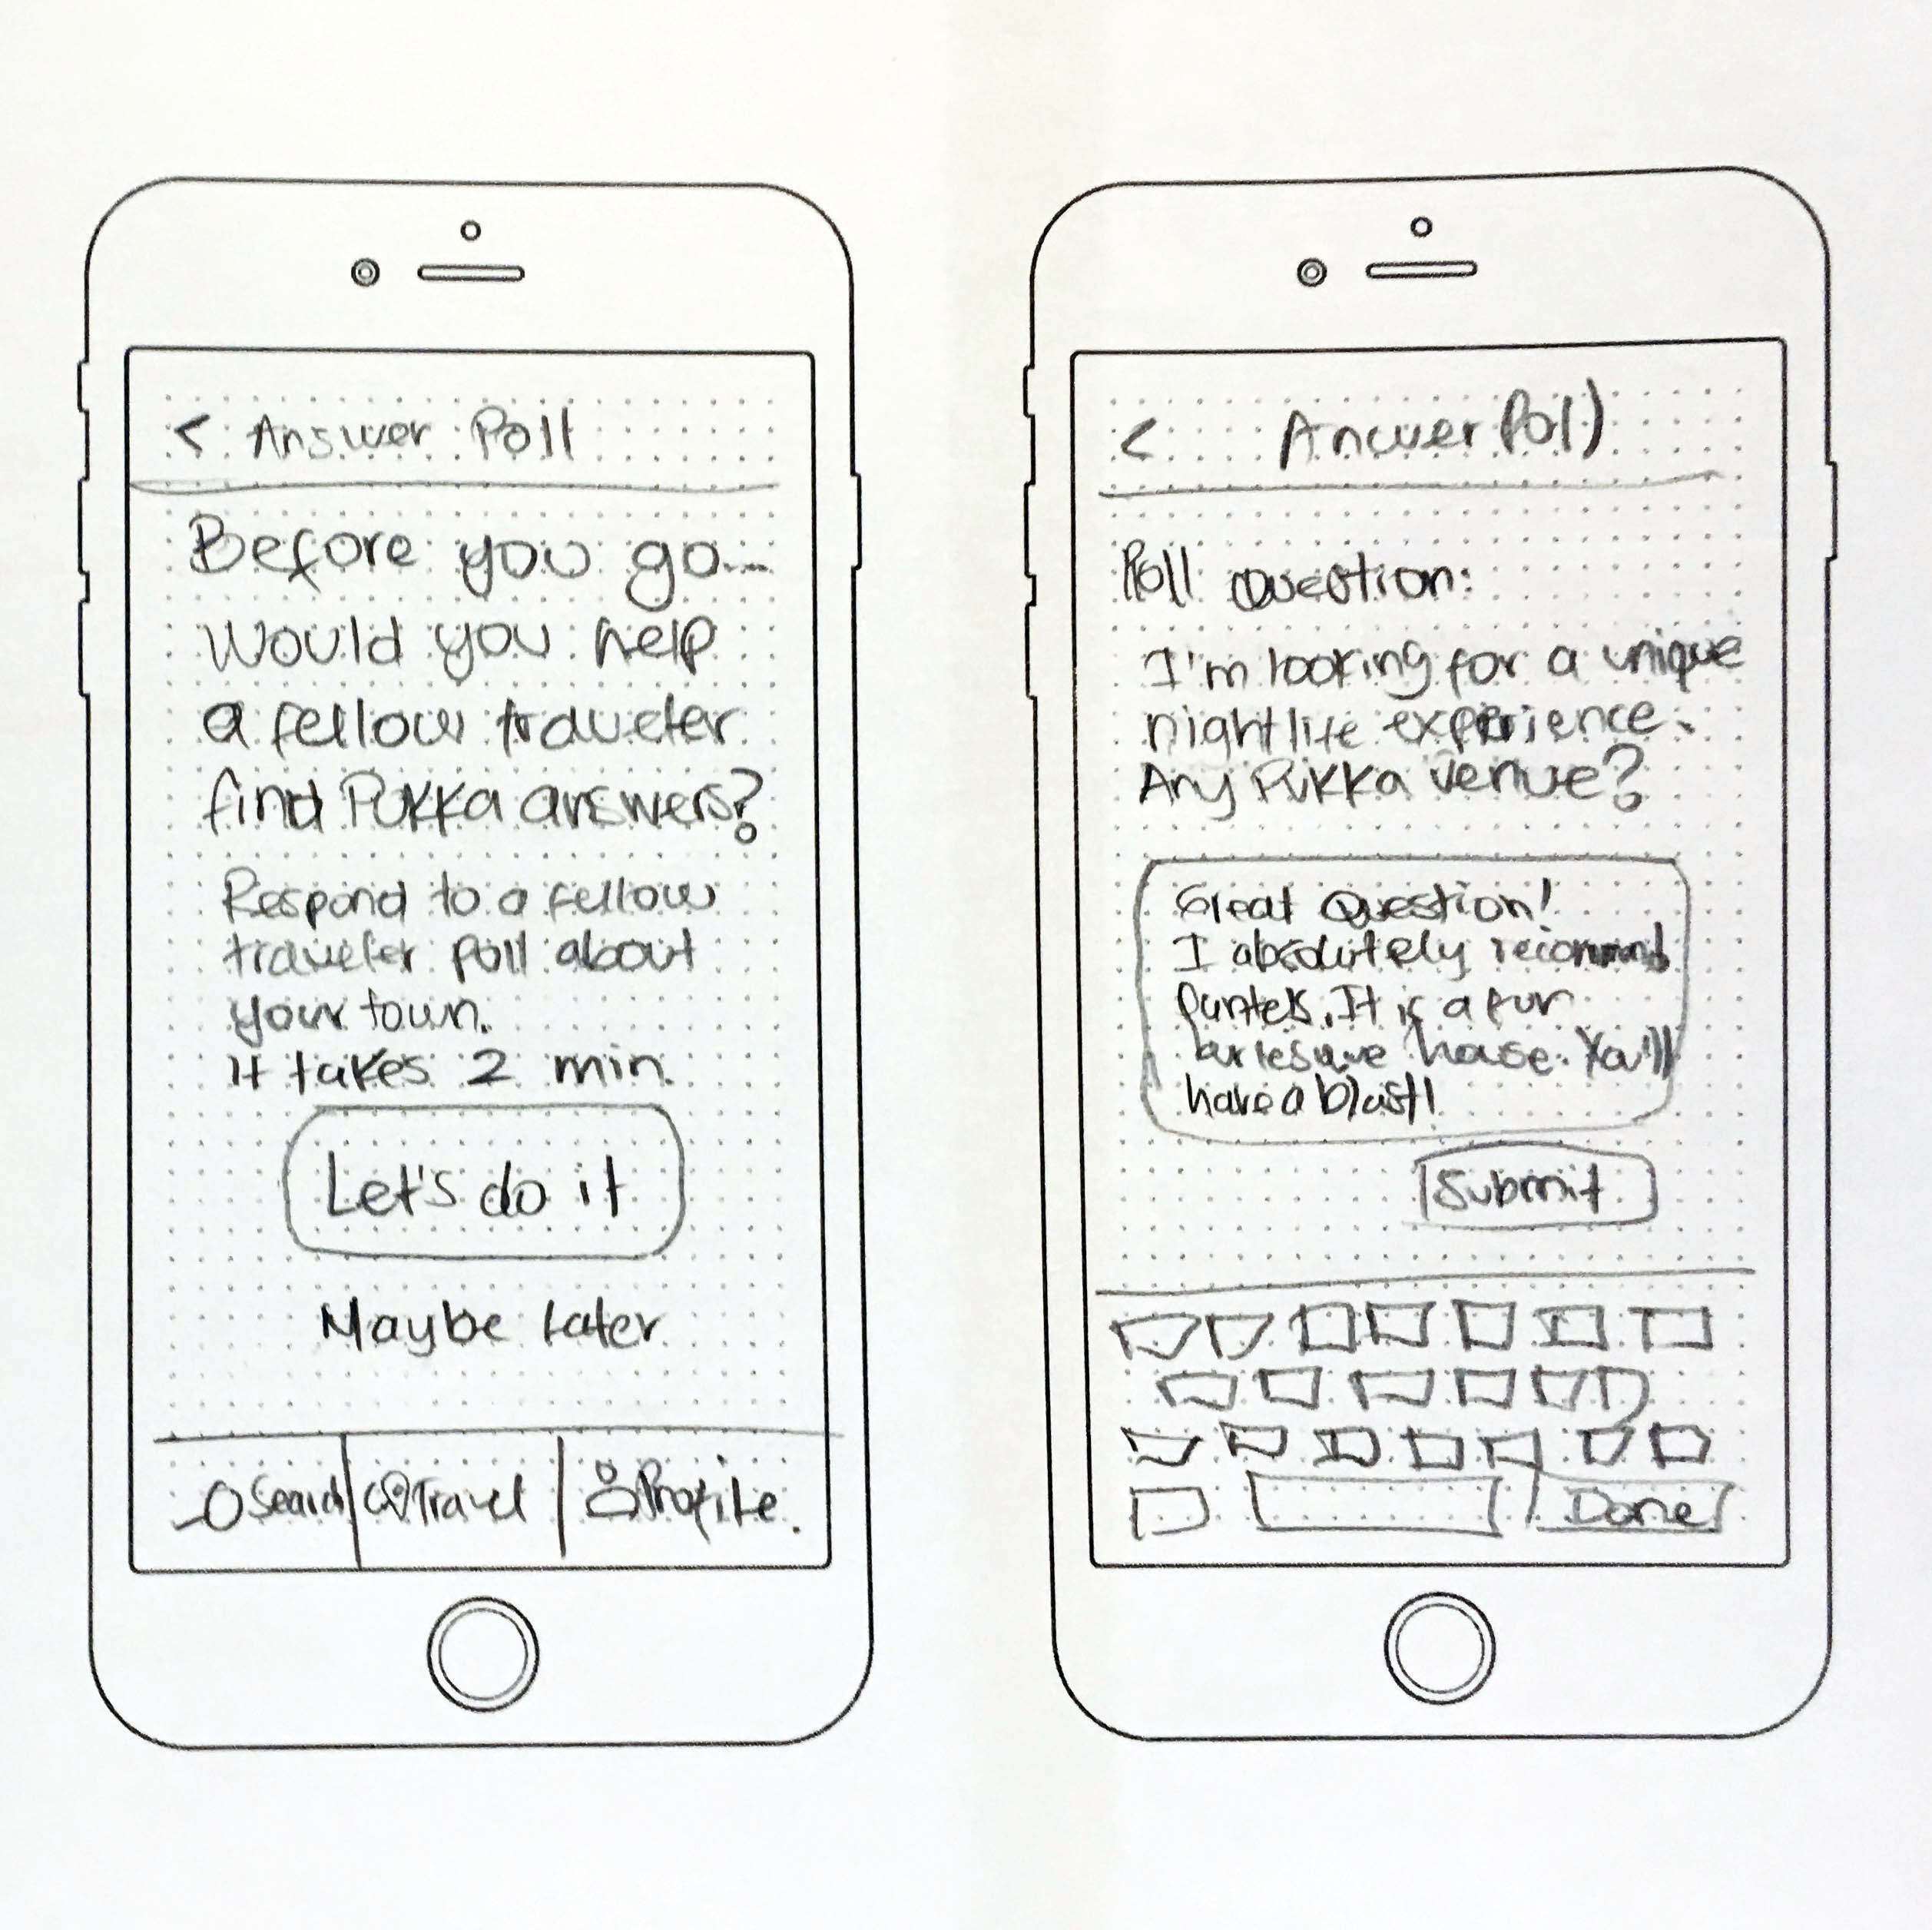 < Answer Poll
Before you go...
Would you help
a fellow traveler
find Pukka answers?
Respond to a fellow
traveler poll about
your town.
it takes 2 min.
Let's do it
Maybe Later
Search Travel Profile
< Answer Poll
Poll Question:
I'm looking for a unique
nightlife experience.
Any Pukka venue?
Great Question!
I absolutely recommend
It is a fun
burlesque house. You'll
have a blast!
Submit
Done